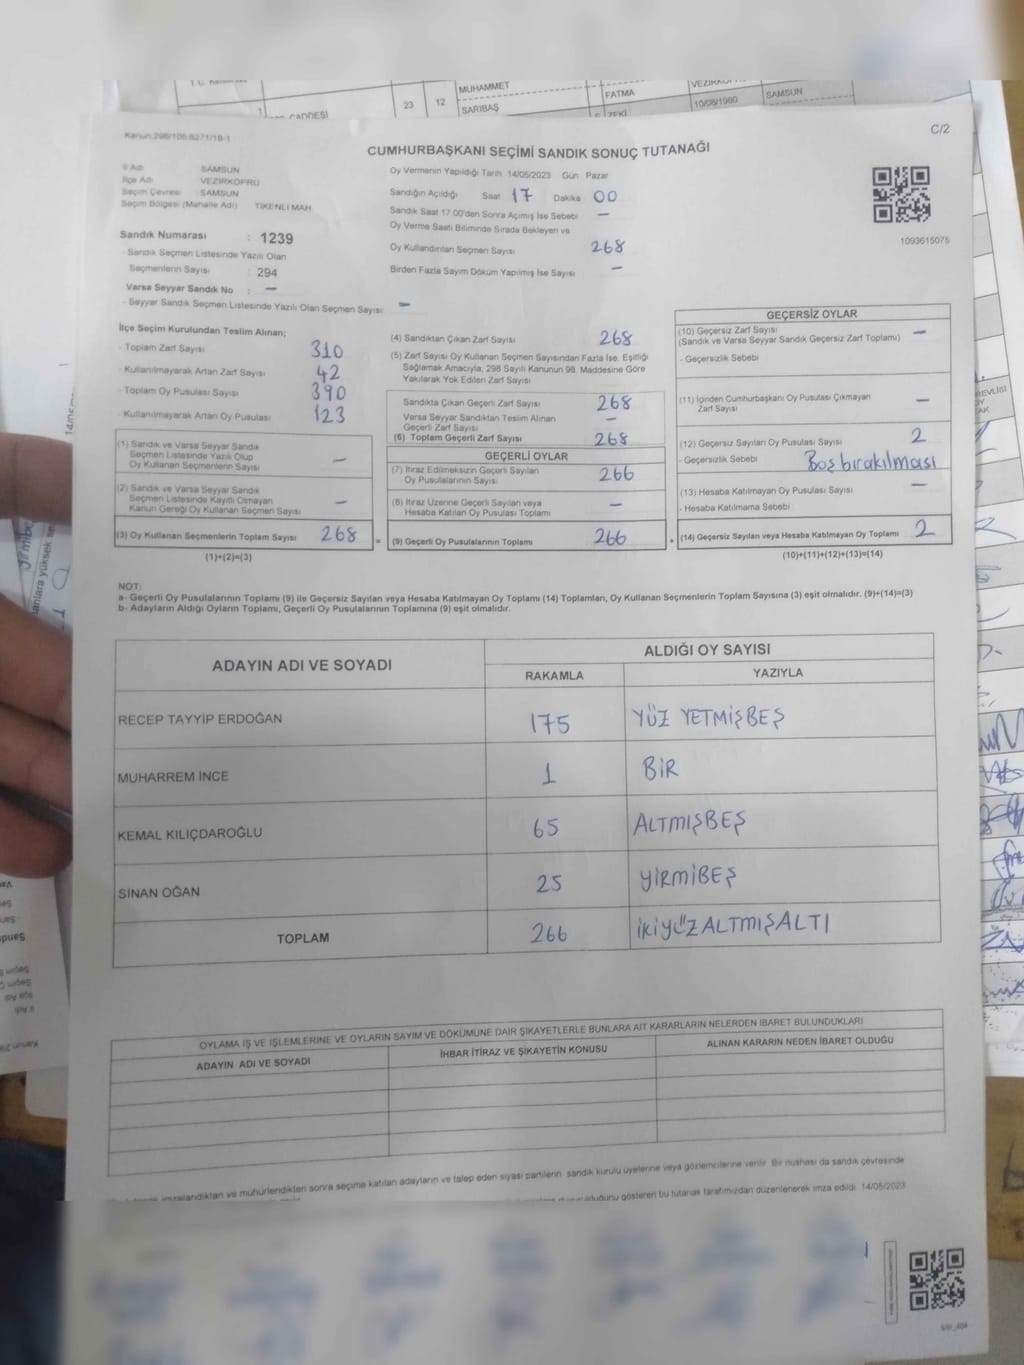 MUHAMMET
SARIBAŞ
FATMA
ZEKİ
10/08/1980
SAMSUN
CADDESİ
23 12
Kanun:298/105-6271/18-1
C/2
CUMHURBAŞKANI SEÇİMİ SANDIK SONUÇ TUTANAĞI
İl Adı SAMSUN
İlçe Adı VEZİRKÖPRÜ
Seçim Çevresi SAMSUN
Seçim Bölgesi (Mahalle Adı) TİKENLİ MAH.
Sandık Numarası : 1239
- Sandık Seçmen Listesinde Yazılı Olan
Seçmenlerin Sayısı : 294
Varsa Seyyar Sandık No : -
- Seyyar Sandık Seçmen Listesinde Yazılı Olan Seçmen Sayısı: -
Oy Vermenin Yapıldığı Tarih 14/05/2023 Gün Pazar
Sandığın Açıldığı Saat 17 Dakika 00
Sandık Saat 17.00'den Sonra Açımış İse Sebebi -
Oy Verme Saati Bitiminde Sırada Bekleyen ve
Oy Kullandırılan Seçmen Sayısı 268
Birden Fazla Sayım Döküm Yapılmış İse Sayısı -
1093615075
İlçe Seçim Kurulundan Teslim Alınan;
- Toplam Zarf Sayısı 310
- Kullanılmayarak Artan Zarf Sayısı 42
- Toplam Oy Pusulası Sayısı 390
- Kullanılmayarak Artan Oy Pusulası 123
(1) Sandık ve Varsa Seyyar Sandık
Seçmen Listesinde Yazılı Olup
Oy Kullanan Seçmenlerin Sayısı -
(2) Sandık ve Varsa Seyyar Sandık
Seçmen Listesinde Kayıtlı Olmayan
Kanun Gereği Oy Kullanan Seçmen Sayısı -
(3) Oy Kullanan Seçmenlerin Toplam Sayısı 268 =
(1)+(2)=(3)
(4) Sandıktan Çıkan Zarf Sayısı 268
(5) Zarf Sayısı Oy Kullanan Seçmen Sayısından Fazla İse, Eşitliği
Sağlamak Amacıyla, 298 Sayılı Kanunun 98. Maddesine Göre
Yakılarak Yok Edilen Zarf Sayısı
Sandıkta Çıkan Geçerli Zarf Sayısı 268
Varsa Seyyar Sandıktan Teslim Alınan
Geçerli Zarf Sayısı -
(6) Toplam Geçerli Zarf Sayısı 268
GEÇERLİ OYLAR
(7) İtiraz Edilmeksizin Geçerli Sayılan
Oy Pusulalarının Sayısı 266
(8) İtiraz Üzerine Geçerli Sayılan veya
Hesaba Katılan Oy Pusulası Toplamı -
(9) Geçerli Oy Pusulalarının Toplamı 266 +
GEÇERSİZ OYLAR
(10) Geçersiz Zarf Sayısı
(Sandık ve Varsa Seyyar Sandık Geçersiz Zarf Toplamı) -
- Geçersizlik Sebebi
(11) İçinden Cumhurbaşkanı Oy Pusulası Çıkmayan
Zarf Sayısı -
(12) Geçersiz Sayılan Oy Pusulası Sayısı 2
- Geçersizlik Sebebi Boş bırakılması
(13) Hesaba Katılmayan Oy Pusulası Sayısı -
- Hesaba Katılmama Sebebi
(14) Geçersiz Sayılan veya Hesaba Katılmayan Oy Toplamı 2
(10)+(11)+(12)+(13)=(14)
NOT:
a- Geçerli Oy Pusulalarının Toplamı (9) ile Geçersiz Sayılan veya Hesaba Katılmayan Oy Toplamı (14) Toplamları, Oy Kullanan Seçmenlerin Toplam Sayısına (3) eşit olmalıdır. (9)+(14)=(3)
b- Adayların Aldığı Oyların Toplamı, Geçerli Oy Pusulalarının Toplamına (9) eşit olmalıdır.
ADAYIN ADI VE SOYADI
ALDIĞI OY SAYISI
RAKAMLA YAZIYLA
RECEP TAYYİP ERDOĞAN 175 YÜZ YETMİŞBEŞ
MUHARREM İNCE 1 BİR
KEMAL KILIÇDAROĞLU 65 ALTMIŞBEŞ
SİNAN OĞAN 25 YİRMİBEŞ
TOPLAM 266 İKİYÜZALTMIŞALTI
OYLAMA İŞ VE İŞLEMLERİNE VE OYLARIN SAYIM VE DÖKÜMÜNE DAİR ŞİKAYETLERLE BUNLARA AİT KARARLARIN NELERDEN İBARET BULUNDUKLARI
ADAYIN ADI VE SOYADI İHBAR İTİRAZ VE ŞİKAYETİN KONUSU ALINAN KARARIN NEDEN İBARET OLDUĞU
imzalandıktan ve mühürlendikten sonra seçime katılan adayların ve talep eden siyasi partilerin sandık kurulu üyelerine veya gözlemcilerine verilir. Bir nüshası da sandık çevresinde
gösteren bu tutanak tarafımızdan düzenlenerek imza edildi. 14/05/2023